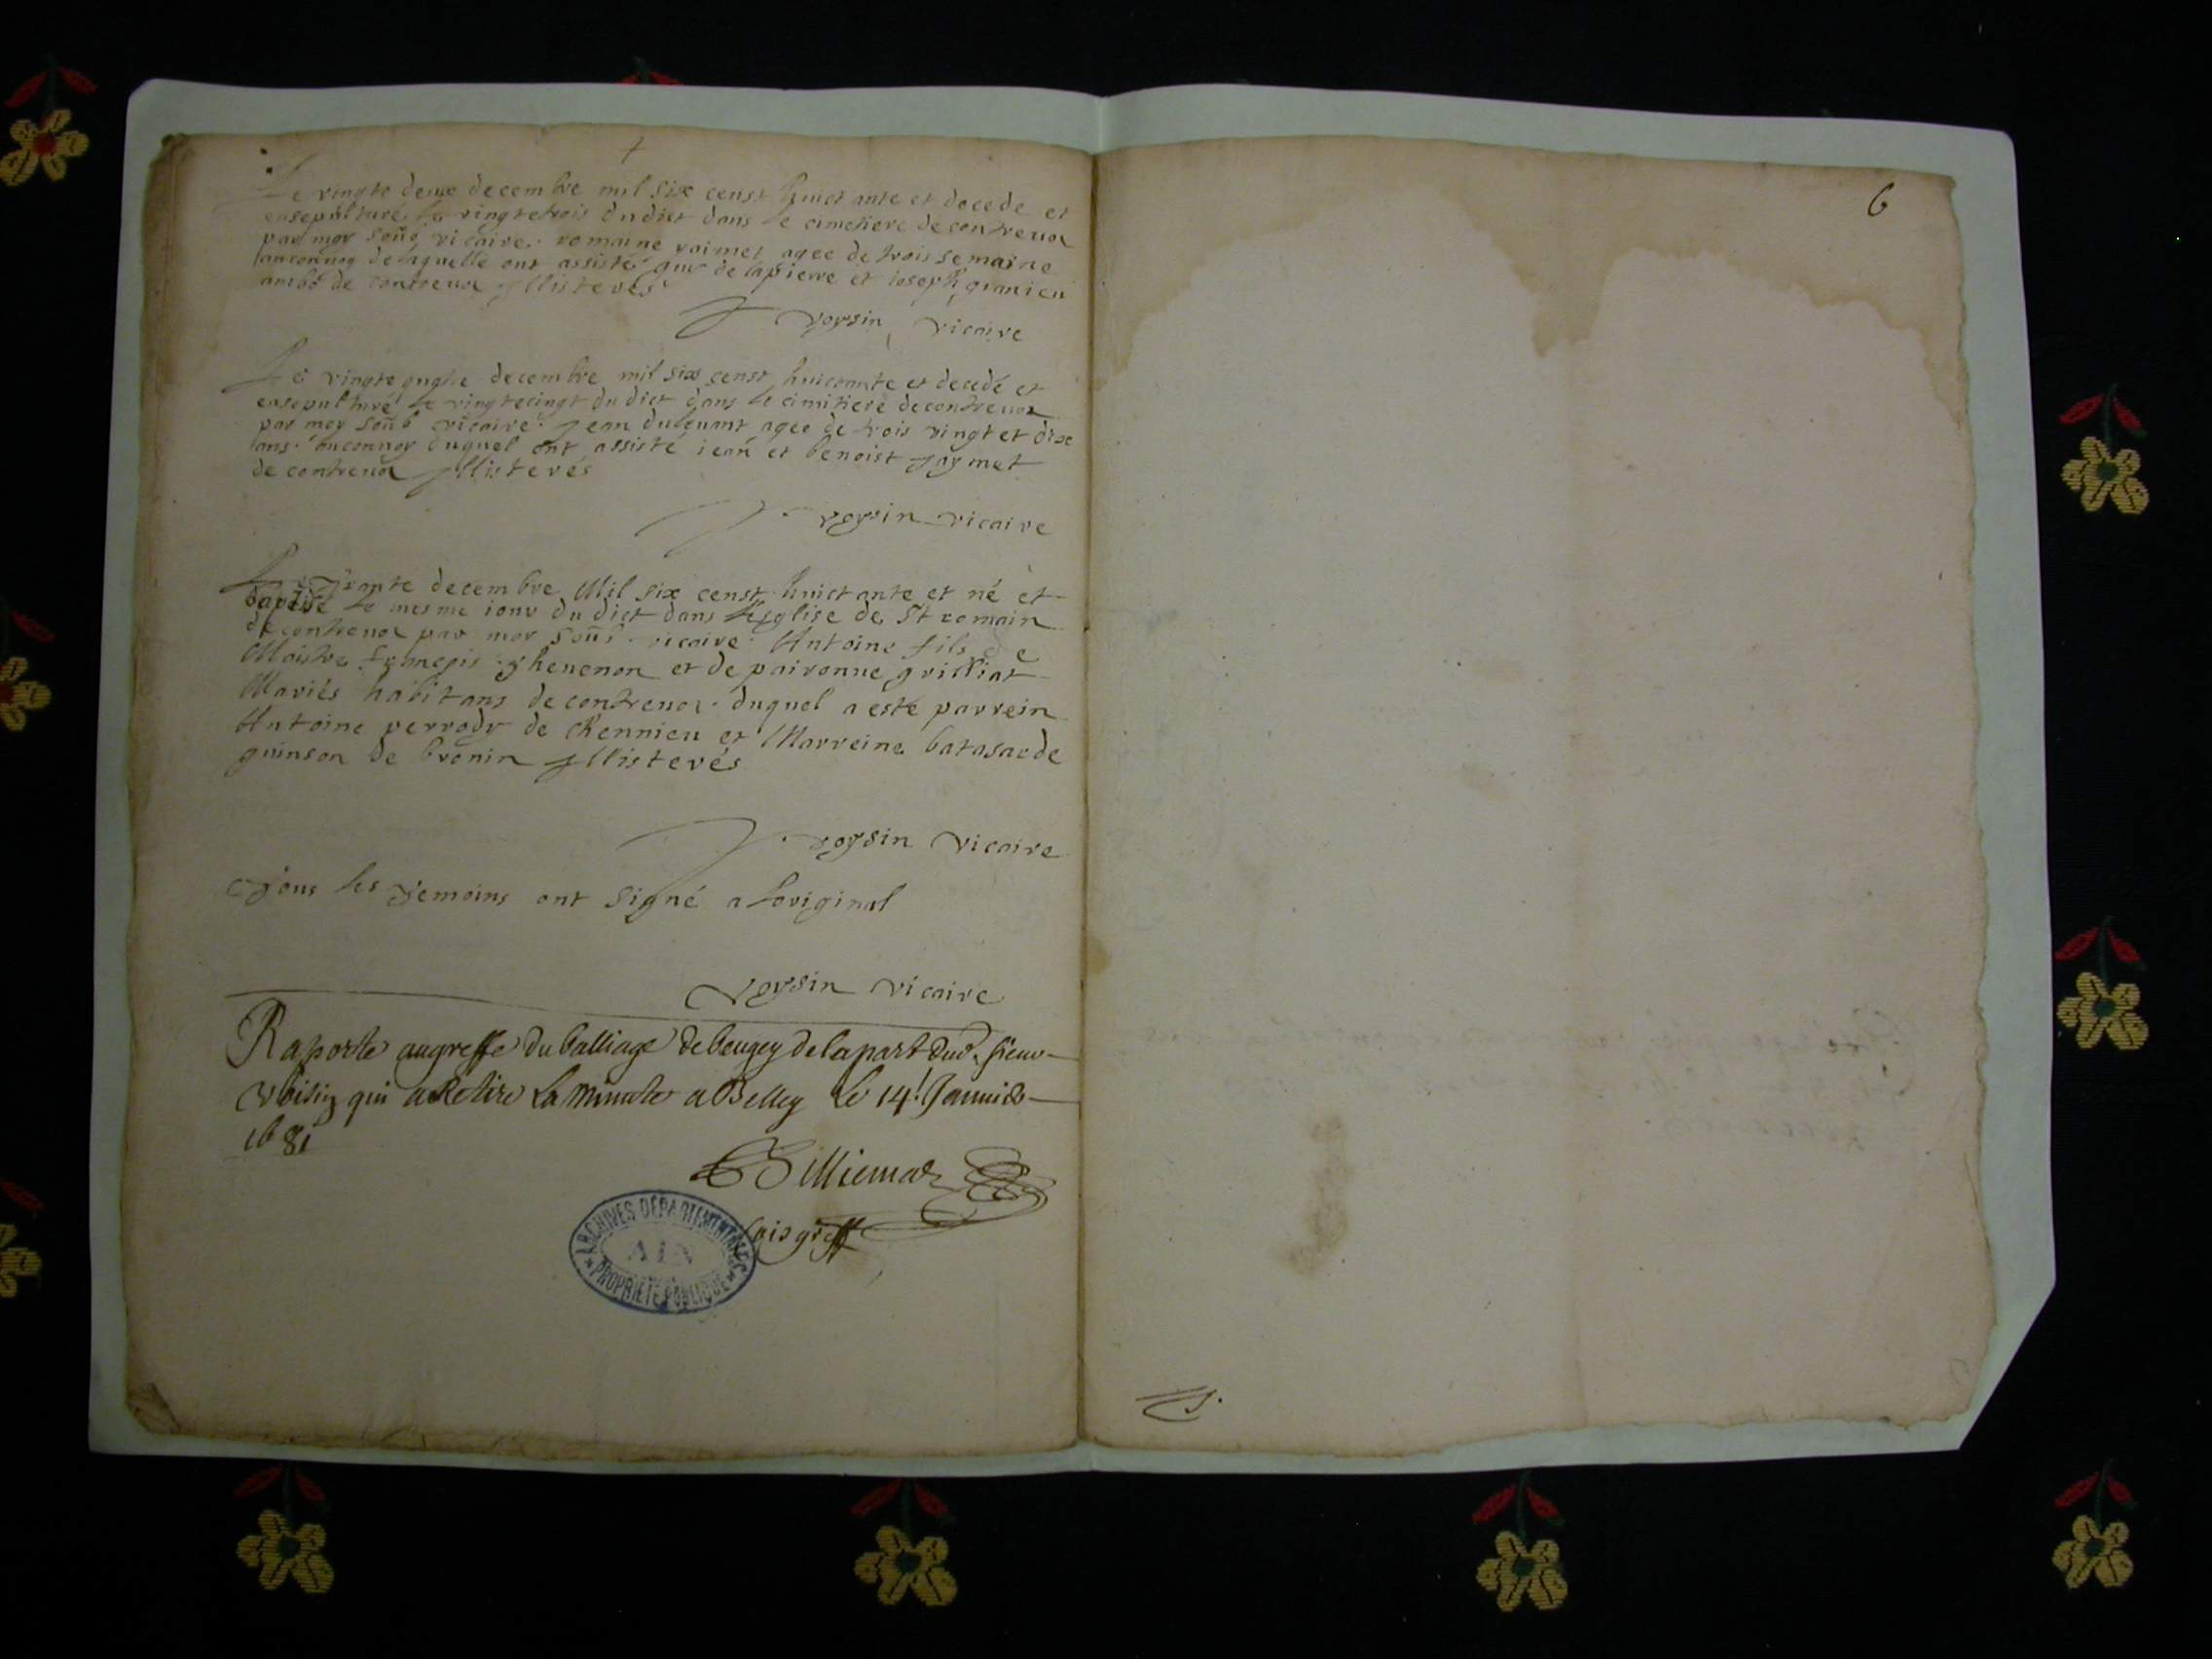 Le vingte deux decembre mil six censt huict ante et decede et
ensepulturé le vingtetrois dudict dans le cimetiere de contrevoz
par moy soūs vicaire. romaine raimet agee de trois semaine
anconnoy de laquelle ont assisté de lapierre et ioseph granieu
ambo de contrevoz Illisterés
voysin vicaire
Le vingte decembre mil six censt huictante et decedé et
ensepulturé le vingtecingt du dict dans le cimitiere de contrevoz
par moy soūs vicaire. Jean agee de trois vingt et dixe
ans. anconnoy duquel ont assisté iean et benoist raymet
de contrevoz Illisterés
voysin vicaire
Le Trante decembre Mil six censt huictante et né et
baptisé le mesme iour du dict dans léglise de St romain
de contrevoz par moy soūs. vicaire. Antoine fils de
Maistre françois thevenon et de paironne grilliat
Mariés habitans de contrevoz. duquel a esté parrein
Antoine perrody de Chennieu et Marreine batasarde
guinson de bronin Illisterés
voysin vicaire
Tous les Temoins ont signé a Loriginal
voysin vicaire
Raporte augreffe du balliage de beugey de la part dud. sieur
Voisin qui a Retire La minute a Belley le 14.e Januier
1681
Billiemaz
greff
ARCHIVES DÉPARTEMENTALES
AIN
PROPRIÉTÉ PUBLIQUE
6